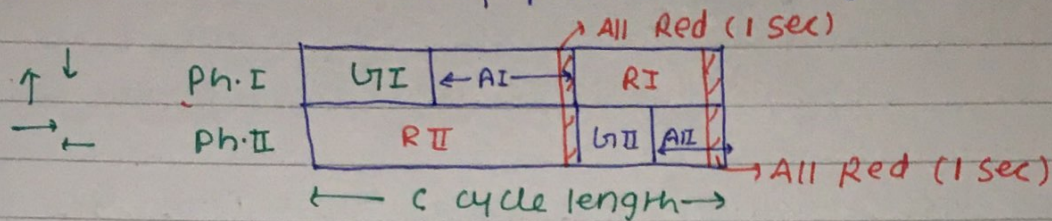 All Red (1 sec)
Ph.I GI AI RI
Ph.II R II GII AII
All Red (1 sec)
C cycle length